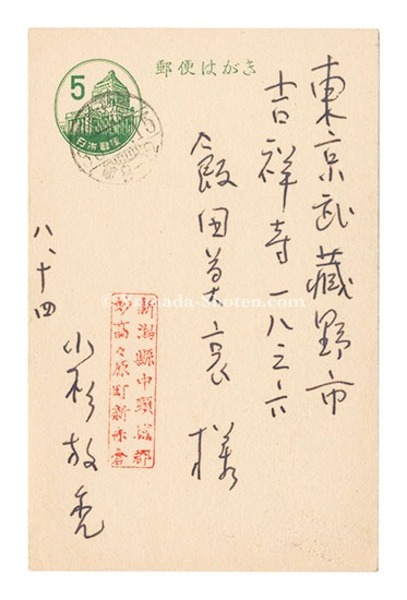 郵便はがき
5
日本郵便
東京都武蔵野市
吉祥寺一八三六
飯田善国様
新潟縣中頸城郡
妙高々原町新赤倉
八、十四
小杉放庵
© Yamada-Shoten.com